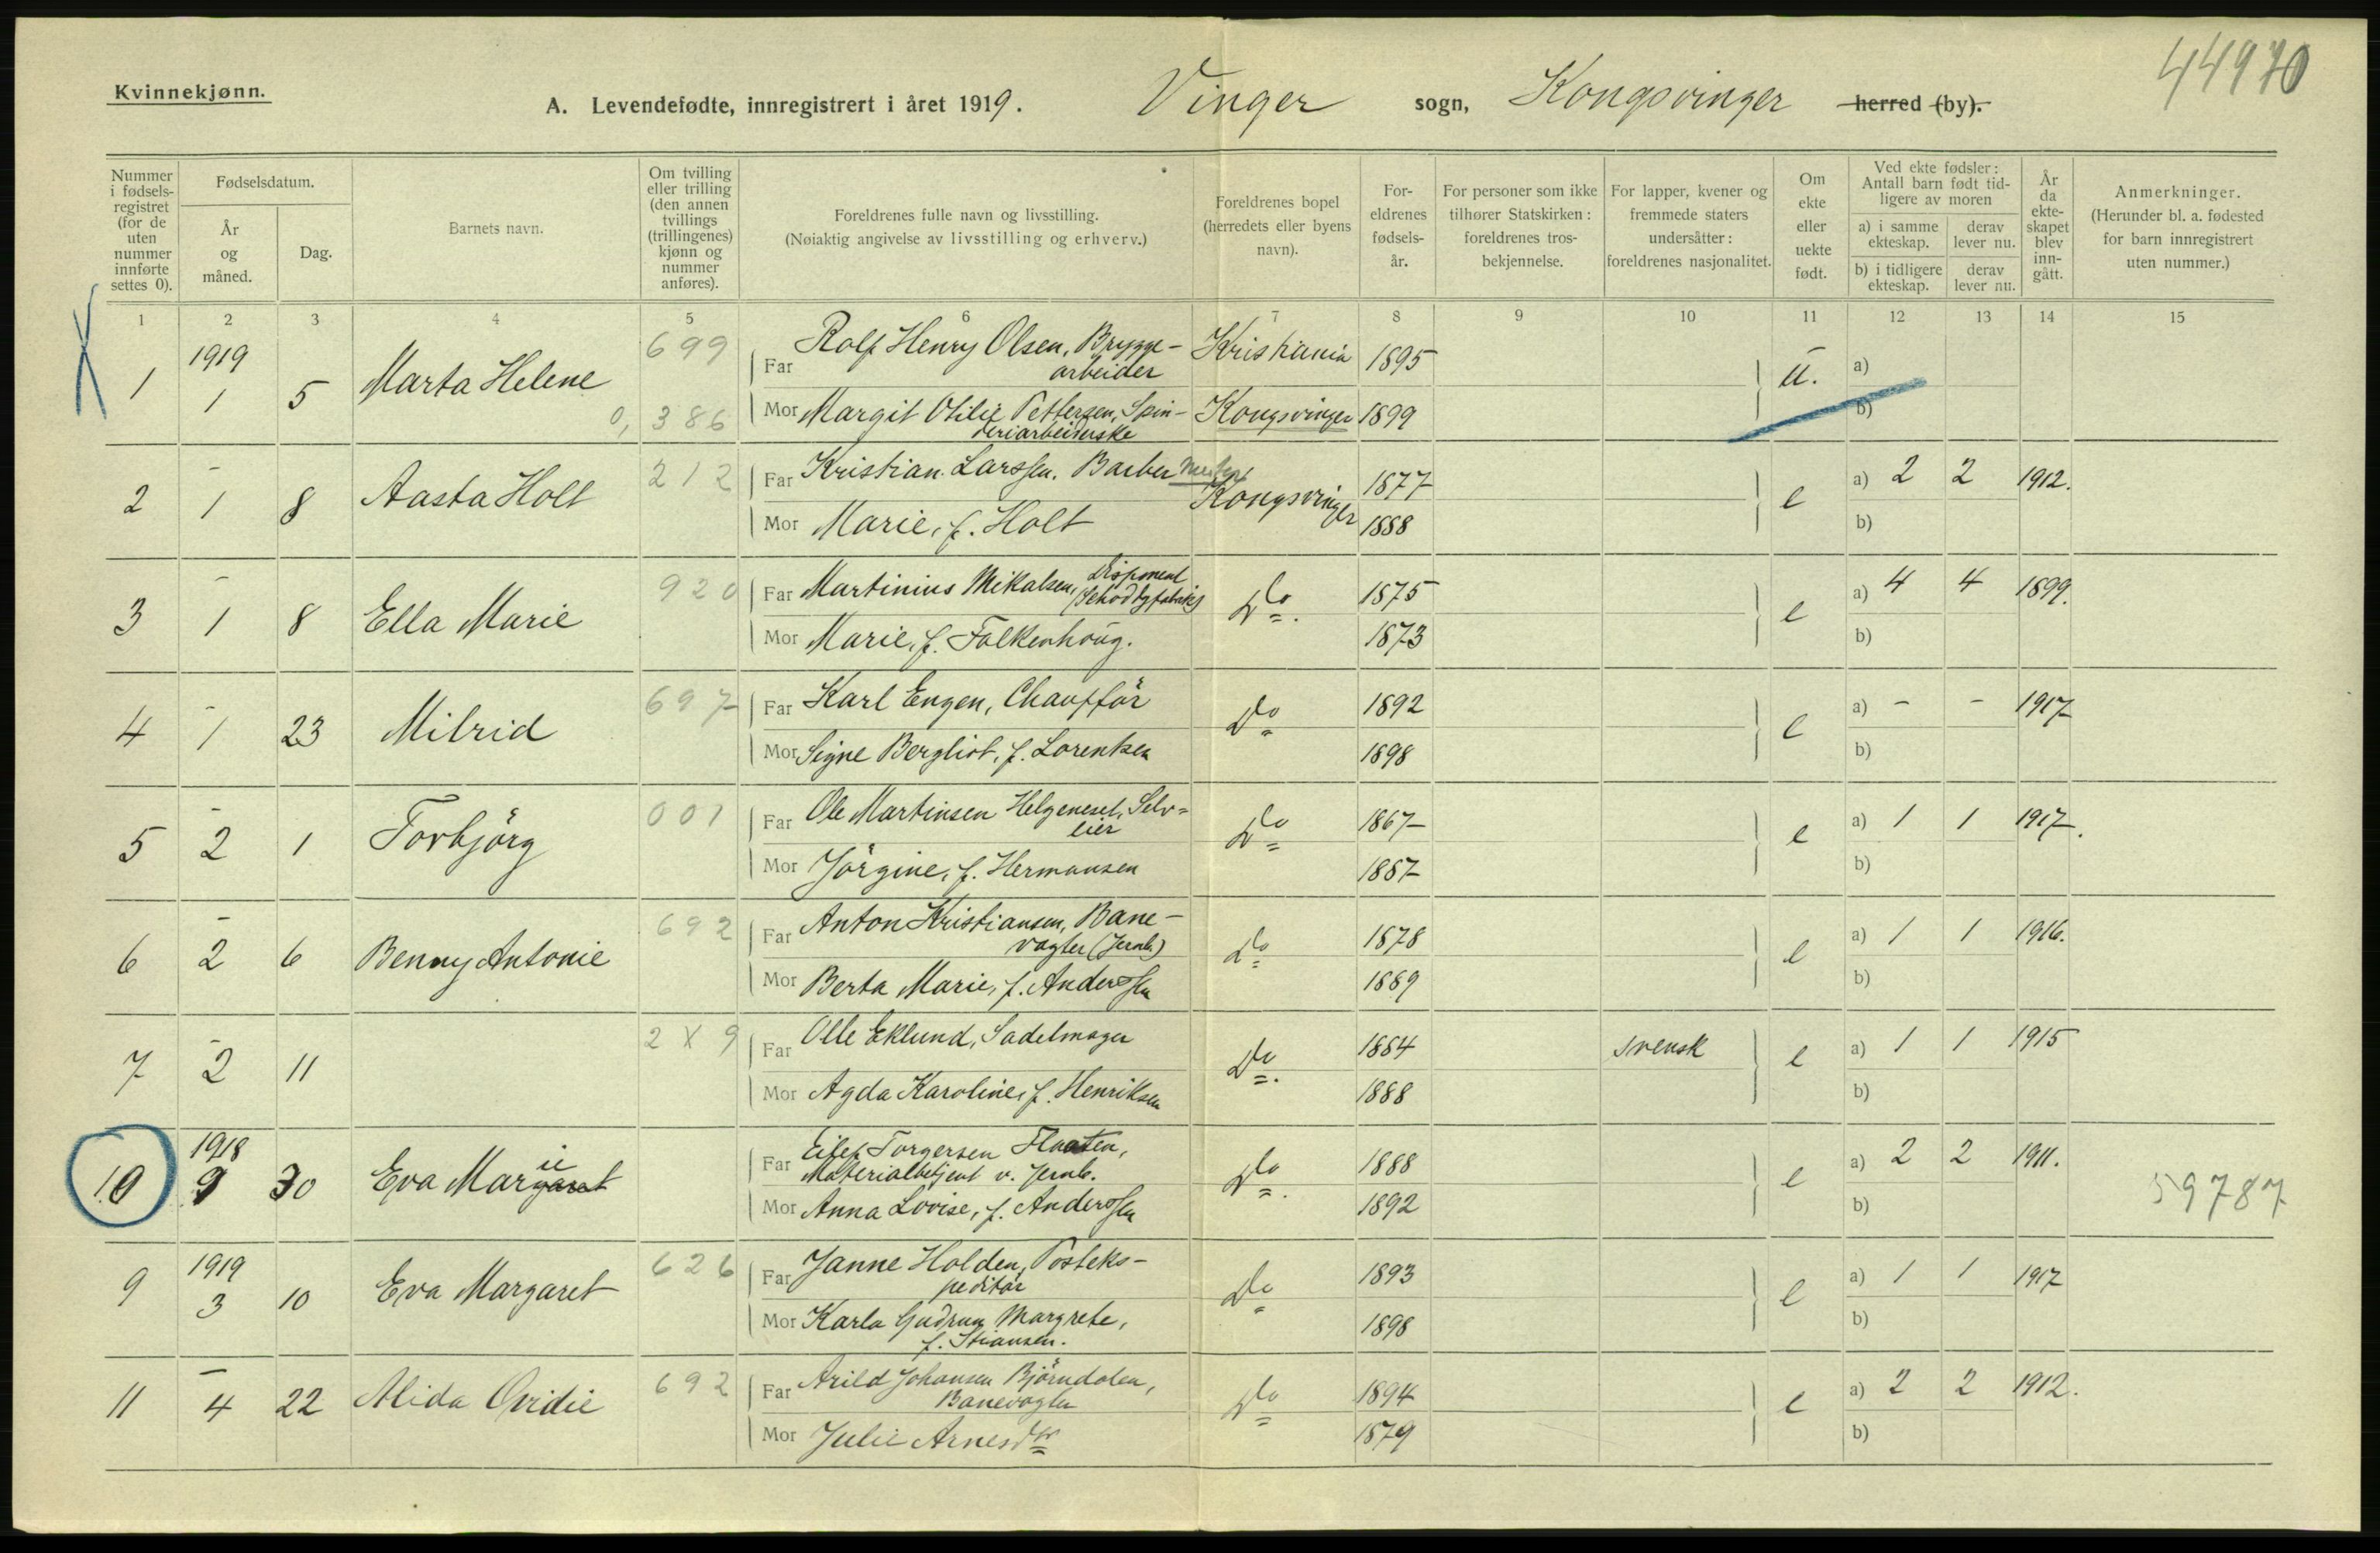 Kvinnekjønn.
44970
A. Levendefødte, innregistrert i året 1919. Vinger sogn, Kongsvinger herred (by).
Nummer i fødsels-registret (for de uten nummer innførte settes 0).
Fødselsdatum.
År og måned.
Dag.
Barnets navn.
Om tvilling eller trilling (den annen tvillings (trillingenes) kjønn og nummer anføres).
Foreldrenes fulle navn og livsstilling.
(Nøiaktig angivelse av livsstilling og erhverv.)
Foreldrenes bopel (herredets eller byens navn).
For-eldrenes fødsels-år.
For personer som ikke tilhører Statskirken: foreldrenes tros-bekjennelse.
For lapper, kvener og fremmede staters undersåtter: foreldrenes nasjonalitet.
Om ekte eller uekte født.
Ved ekte fødsler: Antall barn født tid-ligere av moren
a) i samme ekteskap. derav lever nu.
b) i tidligere ekteskap. derav lever nu.
År da ekte-skapet blev inn-gått.
Anmerkninger.
(Herunder bl. a. fødested for barn innregistrert uten nummer.)
1 2 3 4 5 6 7 8 9 10 11 12 13 14 15
1 1919 1 5 Marta Helene 699 Far Rolf Henry Olsen, Brygge-arbeider Kristiania 1895 u. a)
0, 386 Mor Margit Otilie Pettersen, Spin-deriarbeiderske Kongsvinger 1899 b)
2 - 1 8 Aasta Holt 212 Far Kristian Larssen, Barber mester Kongsvinger 1877 e a) 2 2 1912.
Mor Marie, f. Holt 1888 b)
3 - 1 8 Ella Marie 920 Far Martinius Mikalsen, Disponent Do 1875 e a) 4 4 1899.
Mor Marie, f. Falkenhaug. 1873 b)
4 - 1 23 Milrid 697 Far Karl Engen, Chaufför Do 1892 e a) - - 1917
Mor Signe Bergliot, f. Lorentsen 1898 b)
5 - 2 1 Torbjörg 001 Far Ole Martinsen Helgeneset, Selv=eier Do 1867 e a) 1 1 1917.
Mor Jörgine, f. Hermansen 1887 b)
6 - 2 6 Benny Antonie 692 Far Anton Kristiansen, Bane-vagter (Jernb.) Do 1878 e a) 1 1 1916.
Mor Berta Marie, f. Anderssen 1889 b)
7 - 2 11 2X9 Far Olle Eklund, Sadelmager Do 1884 svensk e a) 1 1 1915
Mor Agda Karoline, f. Henriksen 1888 b)
10 1918 9 30 Eva Margaret ie Far Eilef Torgersen Flaaten, Materialbetjent v. Jernb. Do 1888 e a) 2 2 1911. 59787
Mor Anna Lovise, f. Anderssen 1892 b)
9 1919 3 10 Eva Margaret 626 Far Janne Holden, Posteks-peditör Do 1893 e a) 1 1 1917
Mor Karla Gudrun Margrete, f. Stiansen. 1898 b)
11 - 4 22 Alida Ovidie 692 Far Arild Johansen Björndalen, Banevagter Do 1894 e a) 2 2 1912.
Mor Julie Arnesdtr 1879 b)